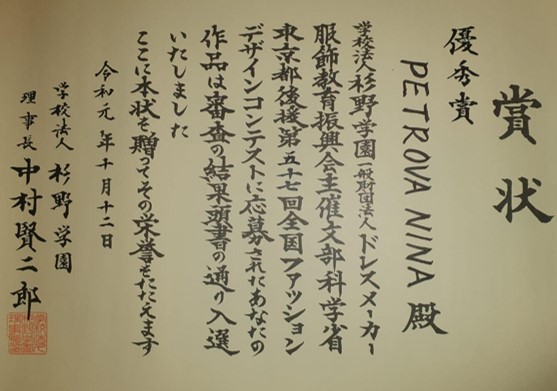 賞状
優秀賞
PETROVA NINA 殿
学校法人杉野学園一般財団法人ドレスメーカー
服飾教育振興会主催文部科学省
東京都後援第五十七回全国ファッション
デザインコンテストに応募されたあなたの
作品は審査の結果頭書の通り入選
いたしました
ここに本状を贈ってその栄誉をたたえます
令和元年十月十二日
学校法人 杉野学園
理事長 中村賢二郎